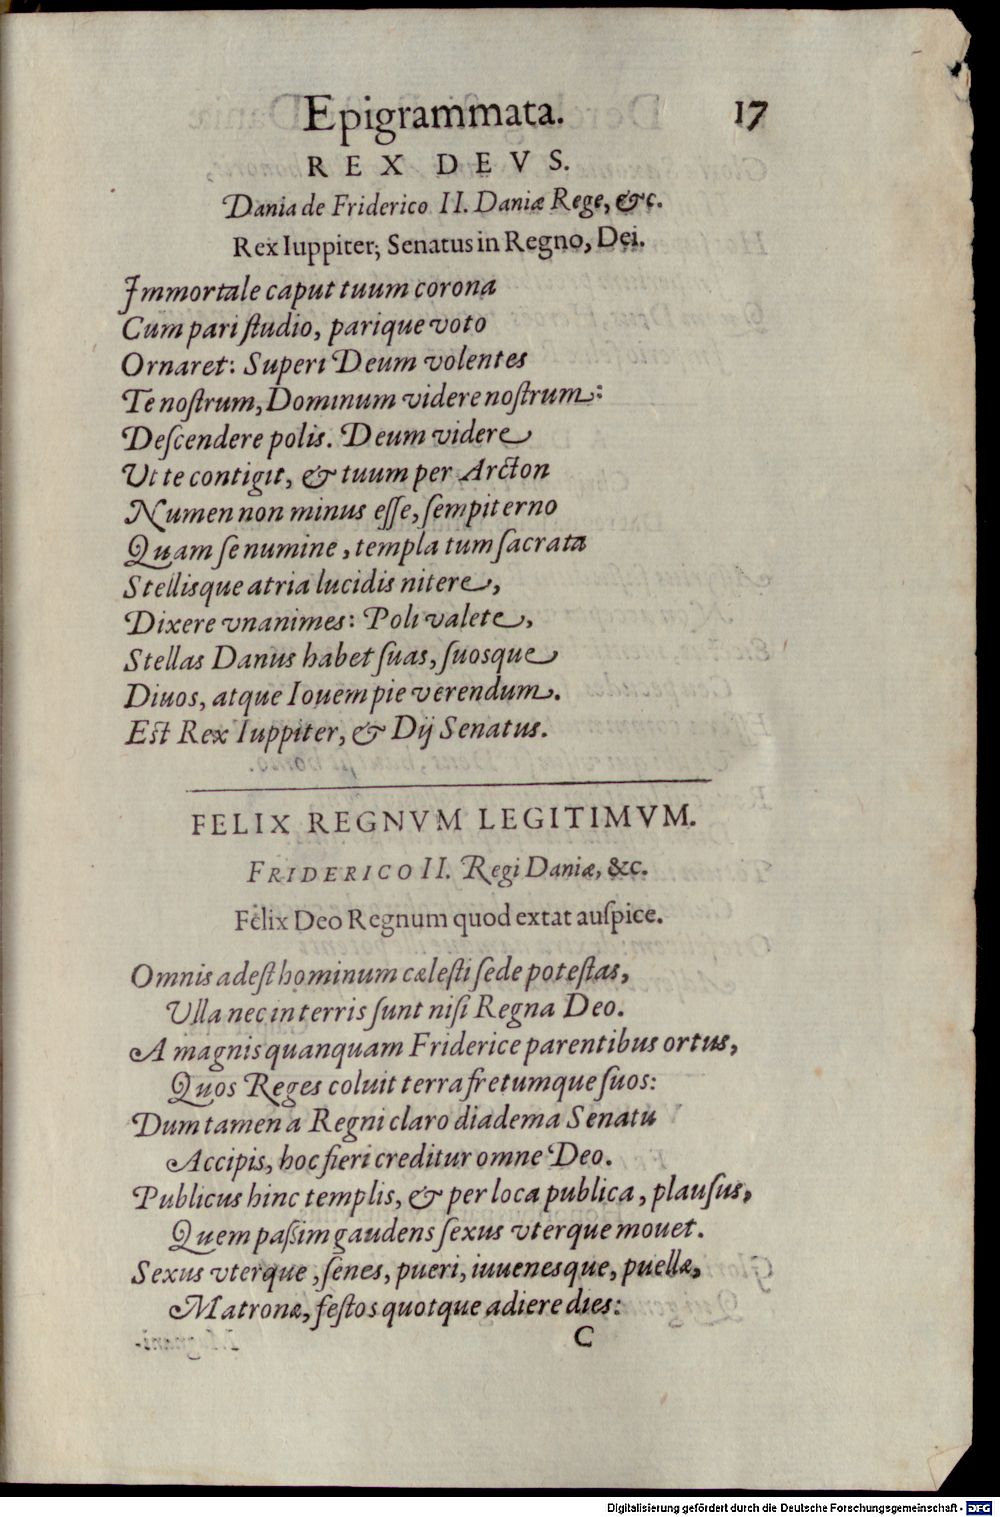 Epigrammata. 17
REX DEVS.
Dania de Friderico II. Daniæ Rege, &c.
Rex Iuppiter; Senatus in Regno, Dei.
Immortale caput tuum corona
Cum pari ſtudio, parique voto
Ornaret: Superi Deum volentes
Te noſtrum, Dominum videre noſtrum:
Deſcendere polis. Deum videre
Ut te contigit, & tuum per Arcton
Numen non minus eſſe, ſempiterno
Quam ſe numine, templa tum ſacrata
Stellisque atria lucidis nitere,
Dixere vnanimes: Poli valete,
Stellas Danus habet ſuas, ſuosque
Diuos, atque Iouem pie verendum.
Est Rex Iuppiter, & Dij Senatus.
FELIX REGNVM LEGITIMVM.
FRIDERICO II. Regi Daniæ, &c.
Felix Deo Regnum quod extat auſpice.
Omnis adeſt hominum cæleſti ſede poteſtas,
Ulla nec in terris ſunt niſi Regna Deo.
A magnis quanquam Friderice parentibus ortus,
Quos Reges coluit terra fretumque ſuos:
Dum tamen a Regni claro diadema Senatu
Accipis, hoc fieri creditur omne Deo.
Publicus hinc templis, & per loca publica, plauſus,
Quem paſsim gaudens ſexus vterque mouet.
Sexus vterque, ſenes, pueri, iuuenesque, puellæ,
Matronæ, feſtos quotque adiere dies:
C
Digitalisierung gefördert durch die Deutsche Forschungsgemeinschaft - DFG